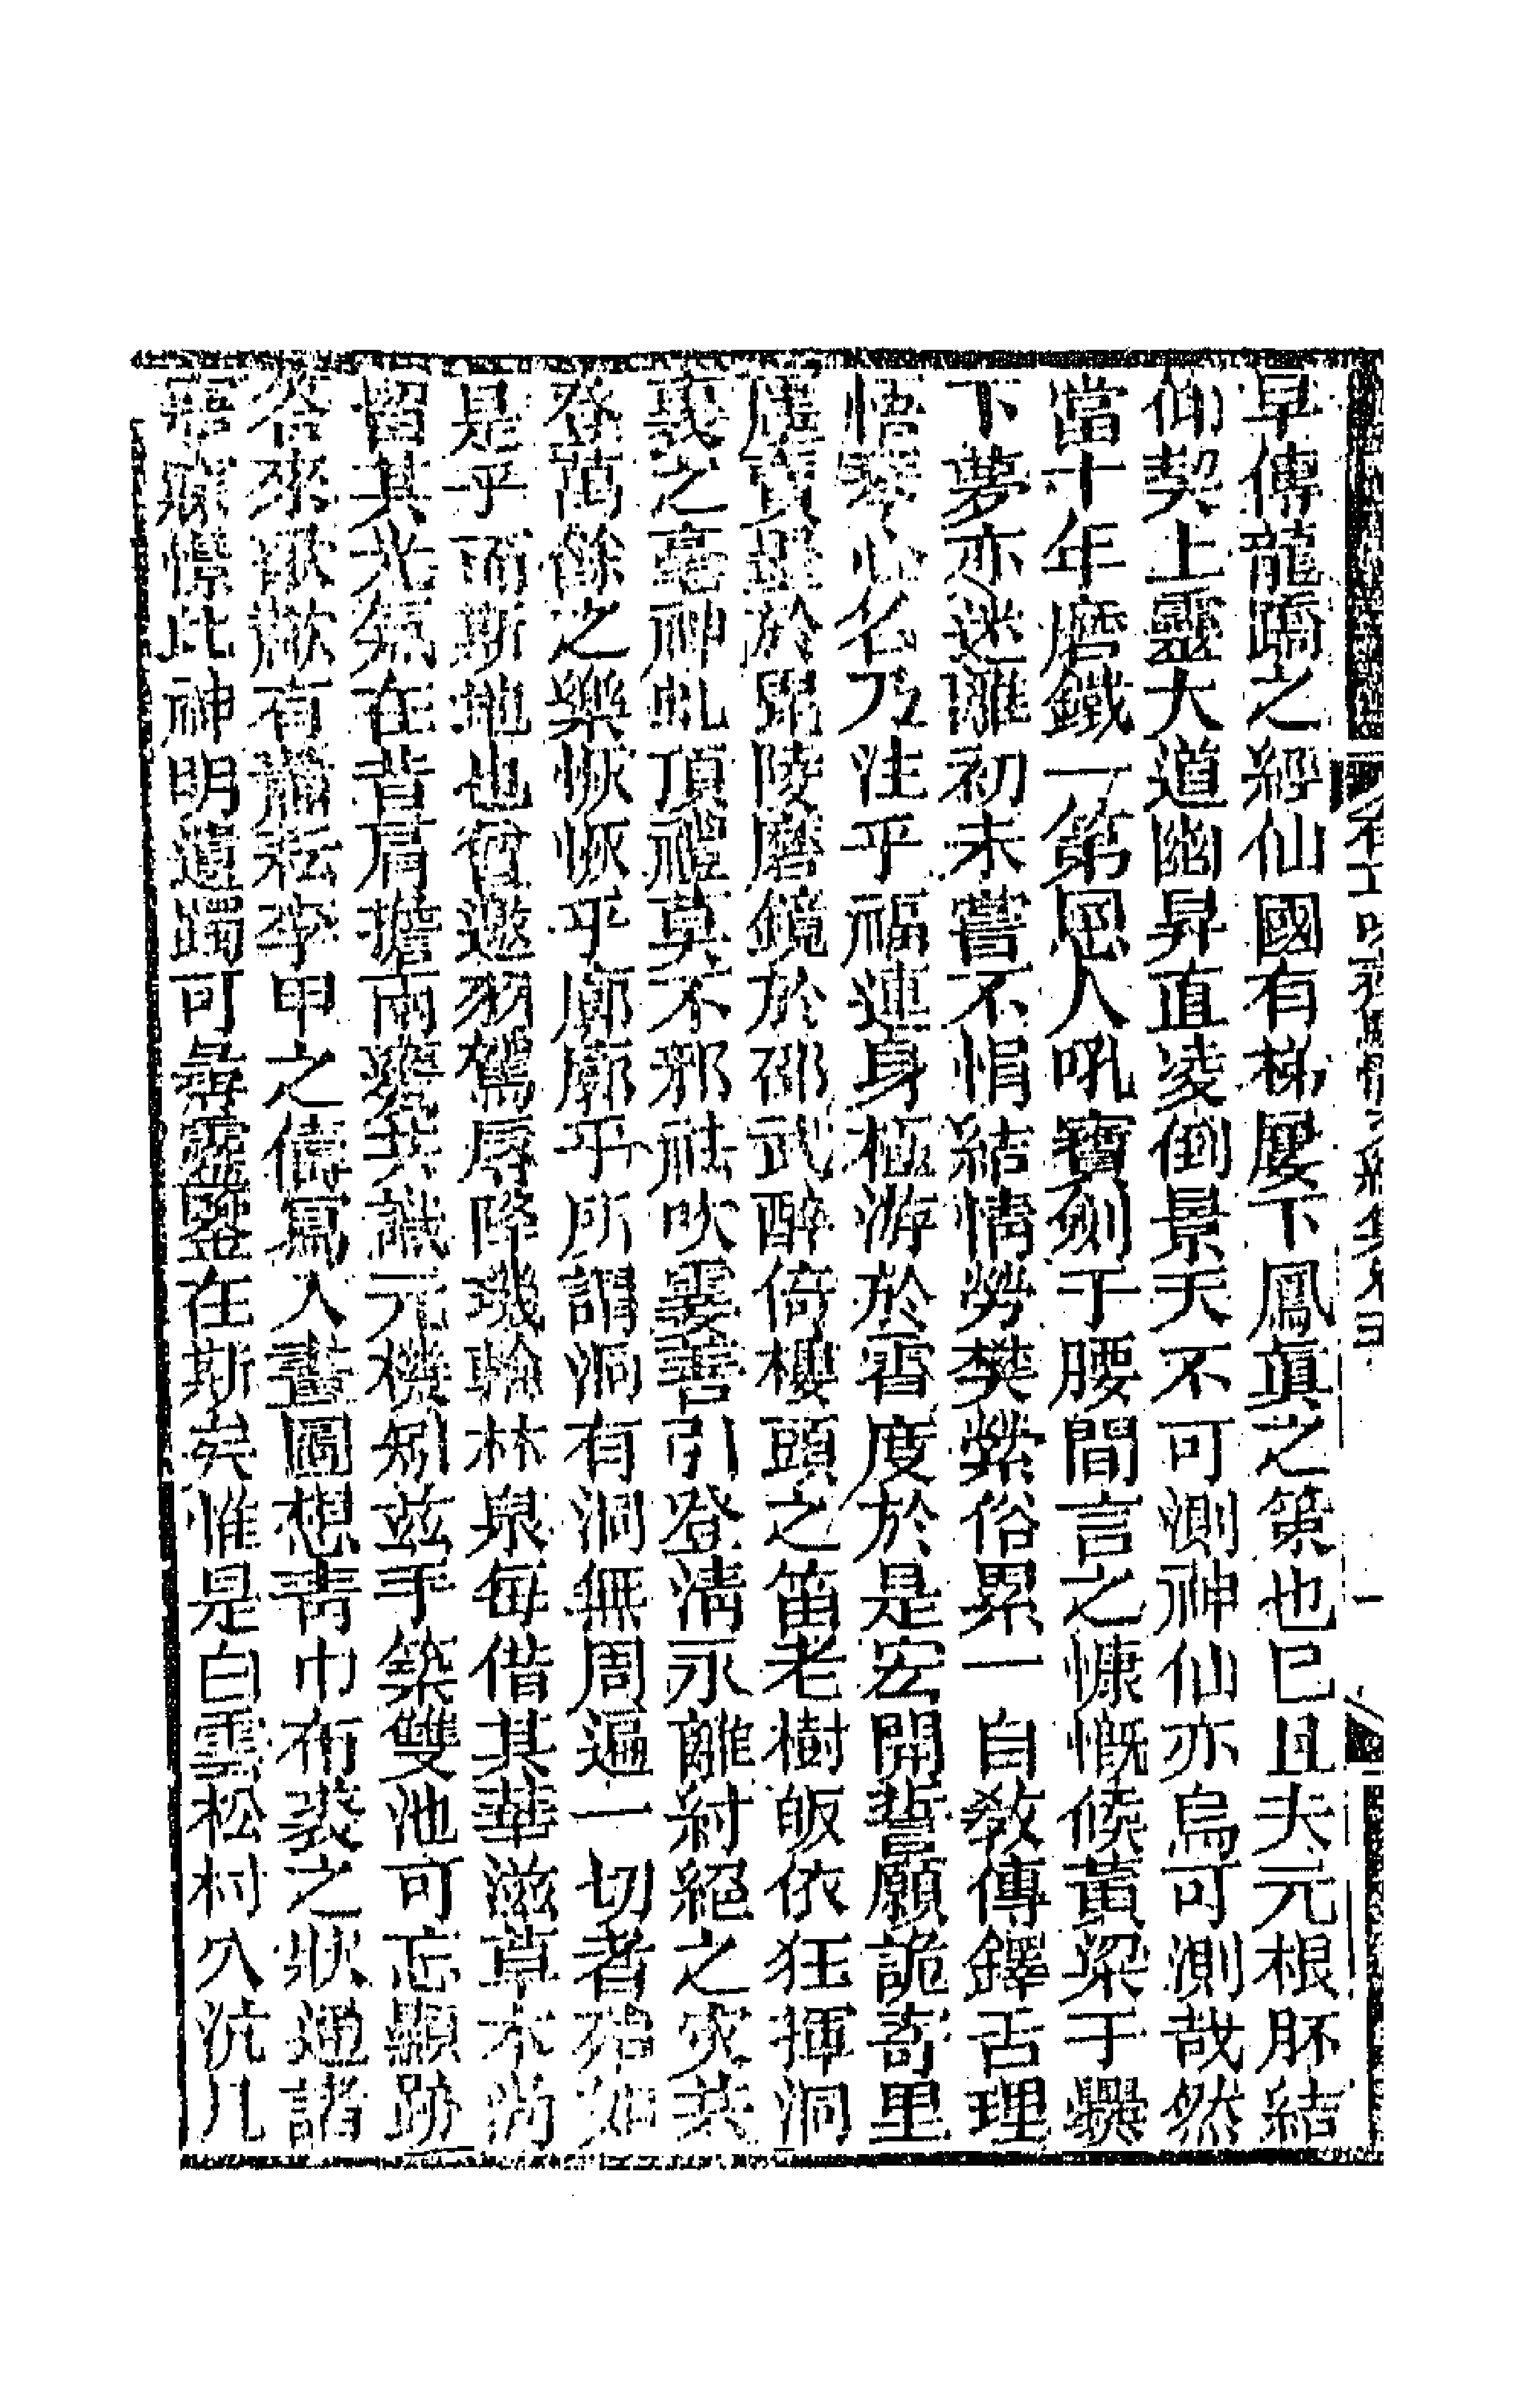 早傳龍蹻之經仙國有梯屢下鳳眞之策也已且夫元根胚結
仰契上靈大道幽昇直凌倒景天不可測神仙亦烏可測哉然
當十年磨鐵一第囷人吼寶劍于腰間言之慷慨候黃粱于爨
下夢亦迷離初未嘗不悁結情勞樊縈俗累一自敎傳鐸舌理
悟琴心名乃注乎福連身極游於霄度於是宏開誓願詭寄里
廛賣墨於毘陵磨鏡於邵武醉倚樓頭之笛老樹皈依狂揮洞
裏之毫神虬頂禮莫不邪祛吹霎善引登淸永離紂絕之灾共
登萬餘之樂恢恢乎廓廓乎所謂洞有洞無周遍一切者殆如
是乎而斯地也曾邀羽駕辱降璣輪林泉每借其華滋草木尚
留其光氣在昔肩擔兩甕共識元機矧茲手築雙池可忘顯跡
爾來歠歃有耘李甲之儔寫入畫圖想靑巾布裘之狀遍諸
憬此神明遺躅可尋靈鑒在斯矣惟是白雲松村穴沆几